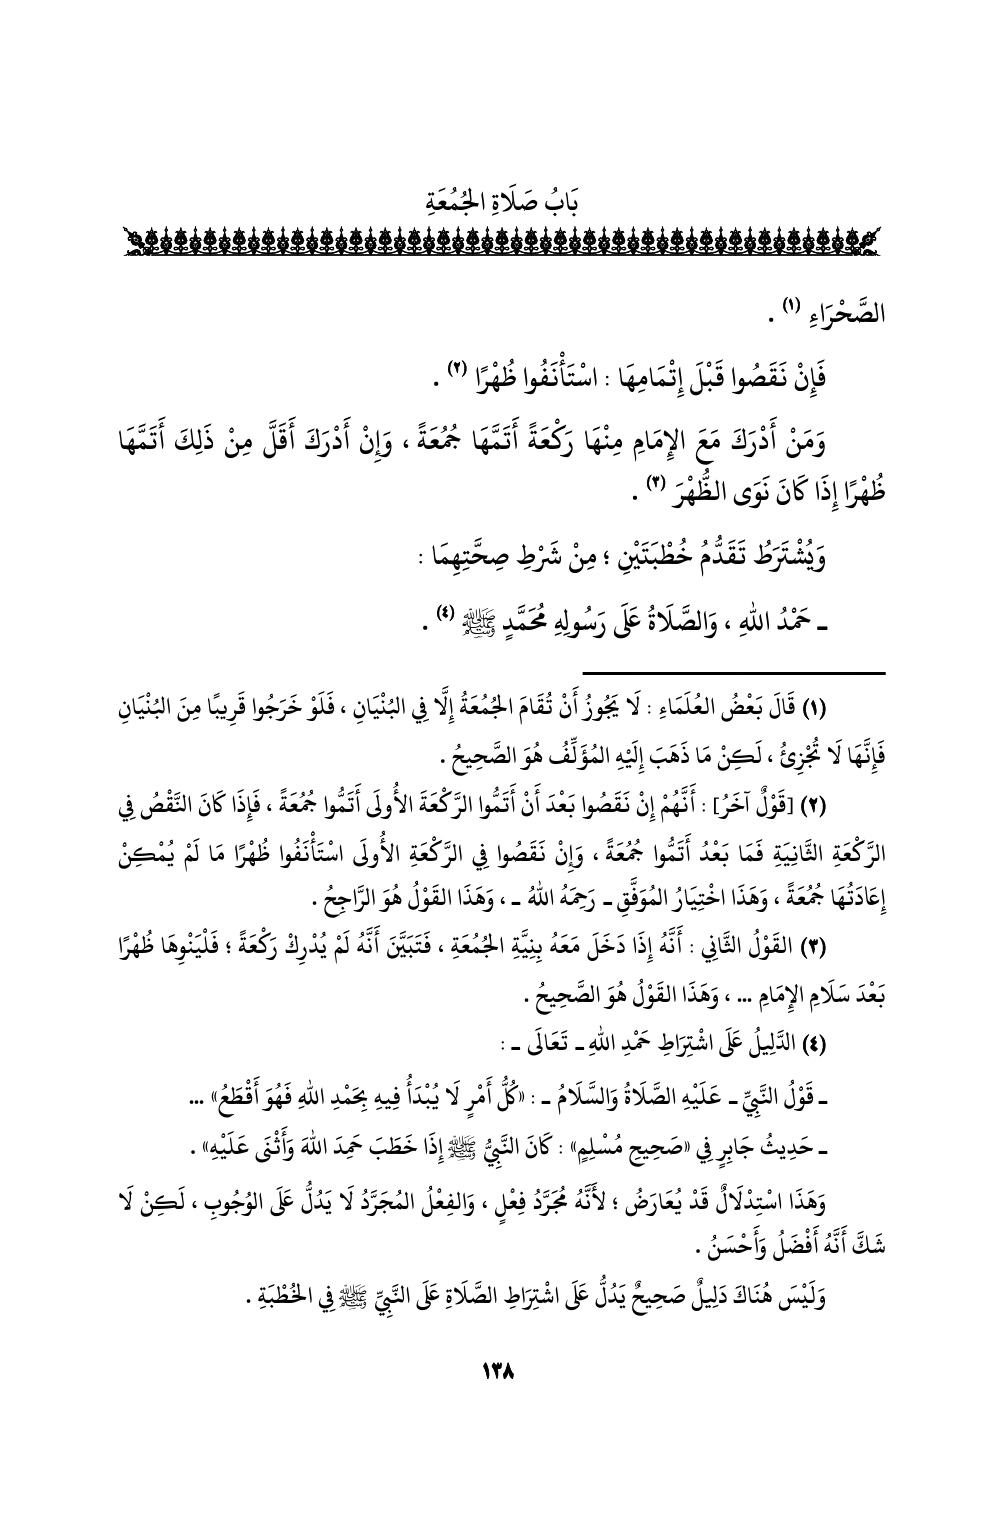 بَابُ صَلَاةِ الجُمُعَةِ
الصَّحْرَاءِ (١) .
فَإِنْ نَقَصُوا قَبْلَ إِتْمَامِهَا : اسْتَأْنَفُوا ظُهْرًا (٢) .
وَمَنْ أَدْرَكَ مَعَ الإِمَامِ مِنْهَا رَكْعَةً أَتَمَّهَا جُمُعَةً ، وَإِنْ أَدْرَكَ أَقَلَّ مِنْ ذَلِكَ أَتَمَّهَا
ظُهْرًا إِذَا كَانَ نَوَى الظُّهْرَ (٣) .
وَيُشْتَرَطُ تَقَدُّمُ خُطْبَتَيْنِ ؛ مِنْ شَرْطِ صِحَّتِهِمَا :
ـ حَمْدُ اللهِ ، وَالصَّلَاةُ عَلَى رَسُولِهِ مُحَمَّدٍ ﷺ (٤) .
(١) قَالَ بَعْضُ العُلَمَاءِ : لَا يَجُوزُ أَنْ تُقَامَ الجُمُعَةُ إِلَّا فِي البُنْيَانِ ، فَلَوْ خَرَجُوا قَرِيبًا مِنَ البُنْيَانِ
فَإِنَّهَا لَا تُجْزِئُ ، لَكِنْ مَا ذَهَبَ إِلَيْهِ المُؤَلِّفُ هُوَ الصَّحِيحُ .
(٢) [قَوْلٌ آخَرُ] : أَنَّهُمْ إِنْ نَقَصُوا بَعْدَ أَنْ أَتَمُّوا الرَّكْعَةَ الأُولَى أَتَمُّوا جُمُعَةً ، فَإِذَا كَانَ النَّقْصُ فِي
الرَّكْعَةِ الثَّانِيَةِ فَمَا بَعْدُ أَتَمُّوا جُمُعَةً ، وَإِنْ نَقَصُوا فِي الرَّكْعَةِ الأُولَى اسْتَأْنَفُوا ظُهْرًا مَا لَمْ يُمْكِنْ
إِعَادَتُهَا جُمُعَةً ، وَهَذَا اخْتِيَارُ المُوَفَّقِ ـ رَحِمَهُ اللهُ ـ ، وَهَذَا القَوْلُ هُوَ الرَّاجِحُ .
(٣) القَوْلُ الثَّانِي : أَنَّهُ إِذَا دَخَلَ مَعَهُ بِنِيَّةِ الجُمُعَةِ ، فَتَبَيَّنَ أَنَّهُ لَمْ يُدْرِكْ رَكْعَةً ؛ فَلْيَنْوِهَا ظُهْرًا
بَعْدَ سَلَامِ الإِمَامِ ... ، وَهَذَا القَوْلُ هُوَ الصَّحِيحُ .
(٤) الدَّلِيلُ عَلَى اشْتِرَاطِ حَمْدِ اللهِ ـ تَعَالَى ـ :
ـ قَوْلُ النَّبِيِّ ـ عَلَيْهِ الصَّلَاةُ وَالسَّلَامُ ـ : «كُلُّ أَمْرٍ لَا يُبْدَأُ فِيهِ بِحَمْدِ اللهِ فَهُوَ أَقْطَعُ» ...
ـ حَدِيثُ جَابِرٍ فِي «صَحِيحِ مُسْلِمٍ» : كَانَ النَّبِيُّ ﷺ إِذَا خَطَبَ حَمِدَ اللهَ وَأَثْنَى عَلَيْهِ» .
وَهَذَا اسْتِدْلَالٌ قَدْ يُعَارَضُ ؛ لأَنَّهُ مُجَرَّدُ فِعْلٍ ، وَالفِعْلُ المُجَرَّدُ لَا يَدُلُّ عَلَى الوُجُوبِ ، لَكِنْ لَا
شَكَّ أَنَّهُ أَفْضَلُ وَأَحْسَنُ .
وَلَيْسَ هُنَاكَ دَلِيلٌ صَحِيحٌ يَدُلُّ عَلَى اشْتِرَاطِ الصَّلَاةِ عَلَى النَّبِيِّ ﷺ فِي الخُطْبَةِ .
١٣٨